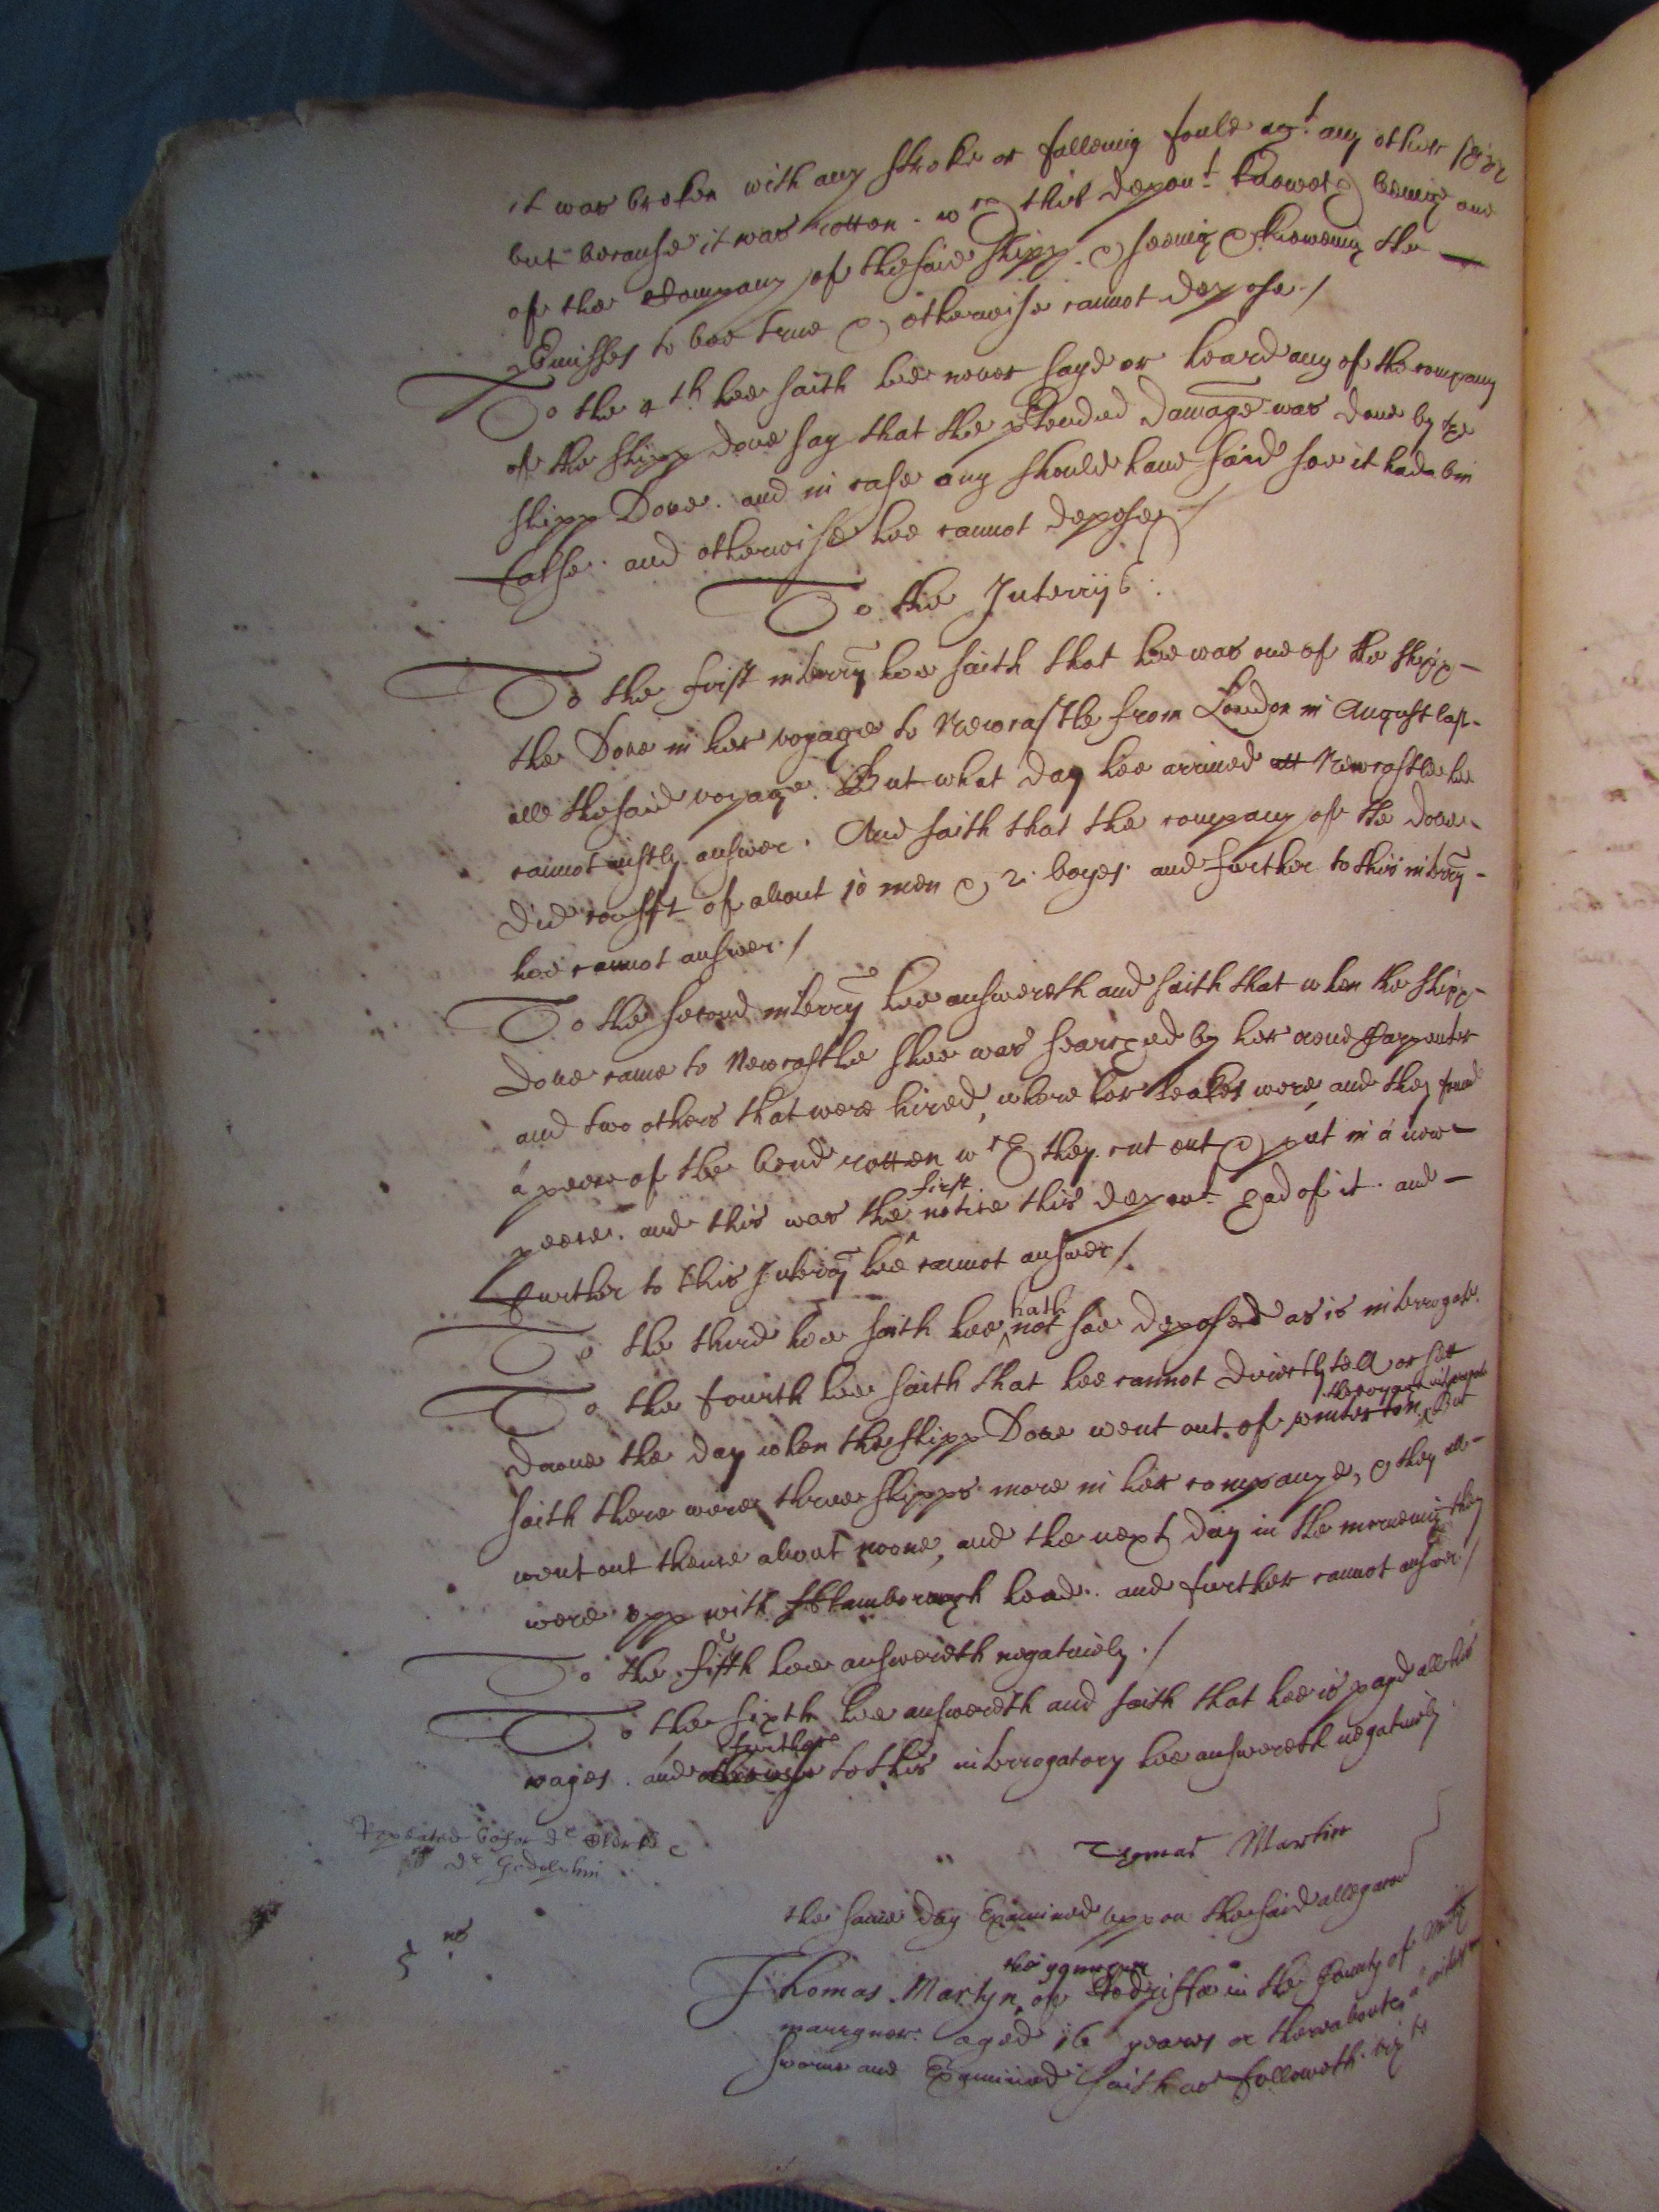 it was broken with any stroke or falleinig foule agt. any other shipp
but because it was rotten. wch this depont. knoweth being one
of the Company of the said shipp. & seeinig & knoweinig the
premisses to bee true & otherwise cannot depose./
To the 4th. hee saith hee never sayd or heard any of the company
of the shipp dove say that the prtended damage was done by the
shipp Dove. and in case any should have said soe it had bin
false. and otherwise hee cannot depose./
To the Interryes:
To the first interry hee saith that hee was one of the shipp
the Dove in her voyage to Newcastle from London in August last
all the said voyage. But what day hee arrived att Newcastle hee
cannot iustly answer. And saith that the company of the Dove
did consist of about 10 men & 2. boyes. and further to this interry
hee cannot answer./
To the second interry hee answereth and saith that when the shipp
Dove came to Newcastle shee was searched by her owne Carpenter
and two others that were hired, where her leakes were, and they found
a peece of the bend rotten wch they cut out & put in a new
peece. and this was the first notice this depont. had of it. and
further to this Interry hee cannot answer/.
To the third hee saith hee hath not soe deposed as is interrogate.
To the fourth hee saith that hee cannot directly tell or sett
downe the day when the shipp Dove went out. of winterton. the voyage But
saith there were three shipps more in her companye, & they all
went out thence about noone, and the next day in the morneinig they
were upp with fflamborough head. and further cannot answer./
To the fifth hee answereth negatively./
To the sixth hee answereth and saith that hee is payd all his
wages. and otherwise further to this interrogatory hee answereth negatively
Thomas Martin
Repeated before dr Clerke
dr Godolphin
the same day Examined uppon the said allegaton
Thomas. Martyn the younger of Redriffe in the County of
marryner. aged 16 yeares or thereabouts a witnes
sworne and Examined saith as followeth. viz to